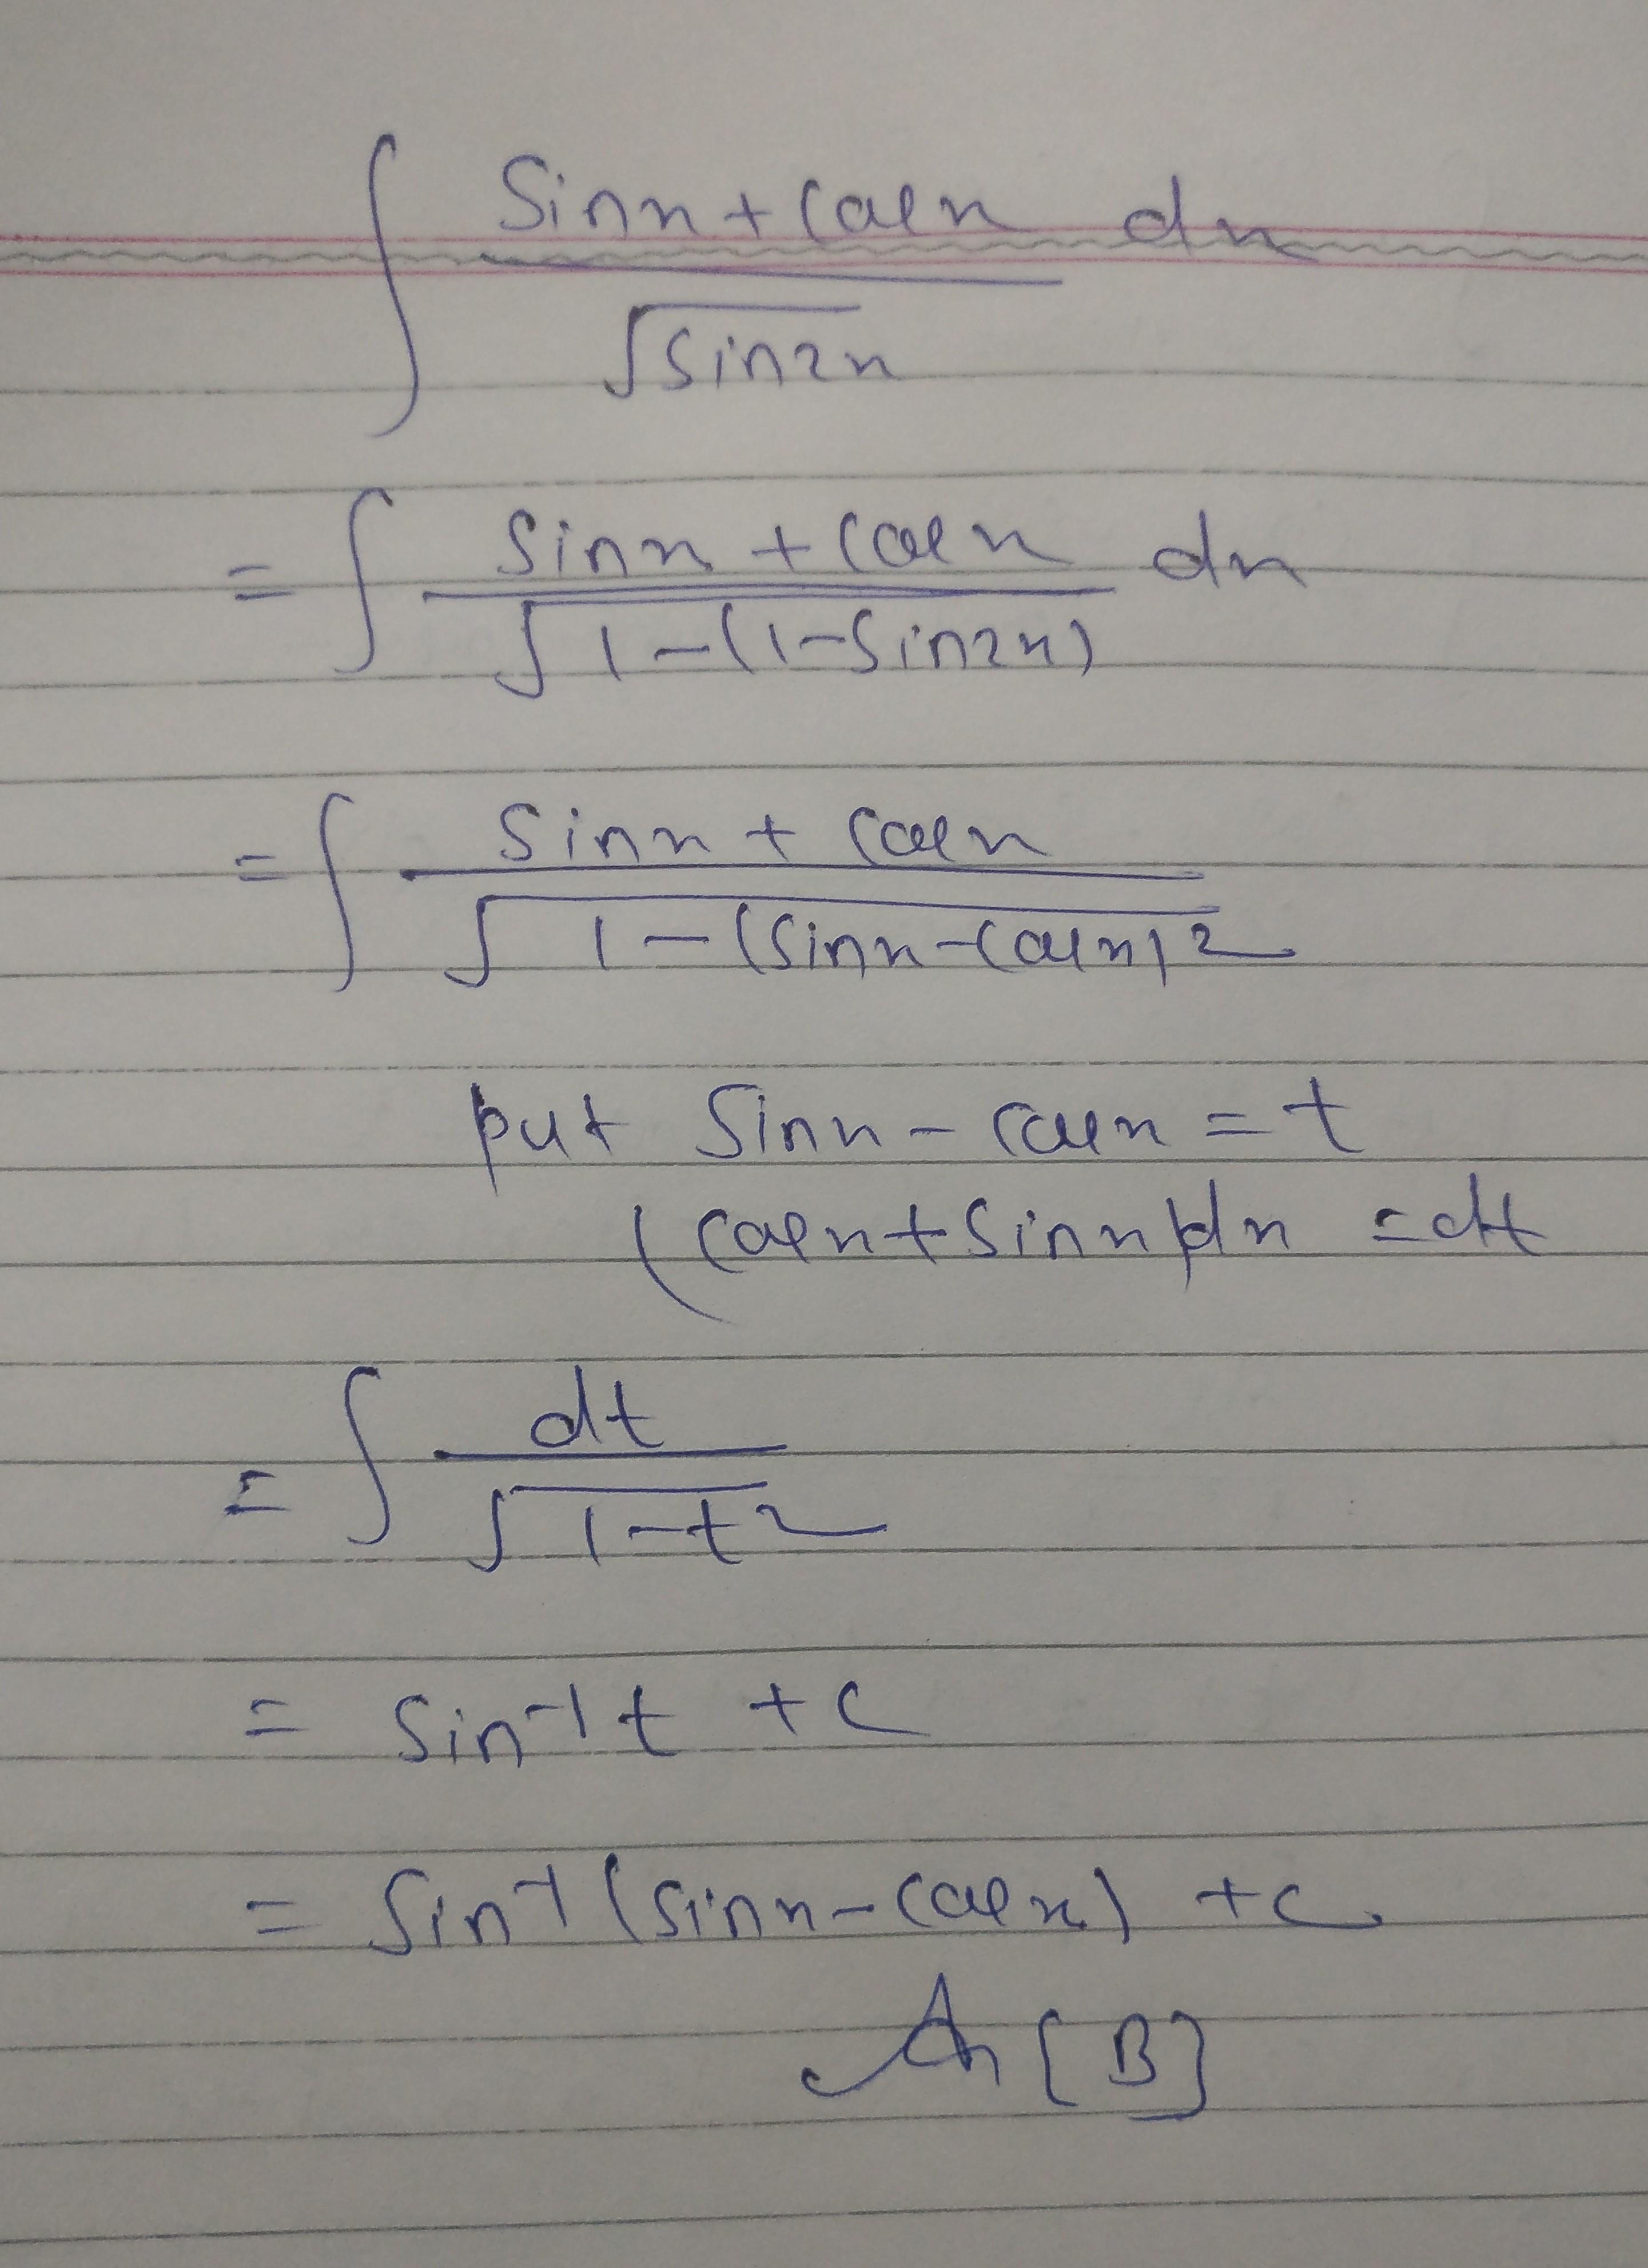 ∫ (sinx + cosx)/√sin2x dx
= ∫ (sinx + cosx)/√(1-(1-sin2x)) dx
= ∫ (sinx + cosx)/√(1-(sinx-cosx)²)
put sinx - cosx = t
(cosx + sinx)dx = dt
= ∫ dt/√(1-t²)
= sin⁻¹t + c
= sin⁻¹(sinx - cosx) + c
An [B]